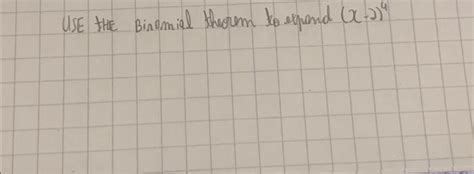 USE tHE Binomial theorem to expand (x-2)⁴